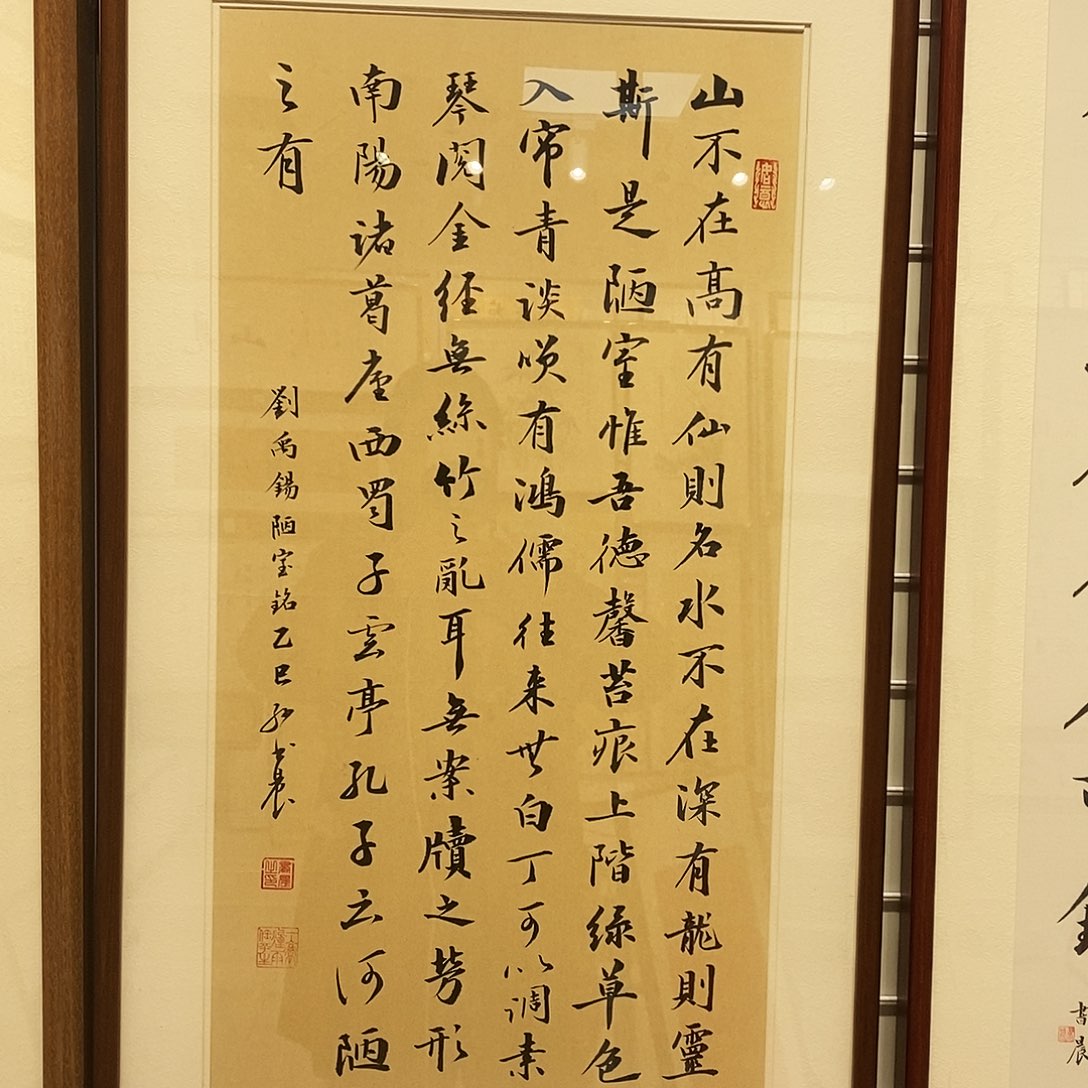 山不在高有仙則名水不在深有龍則靈
斯是陋室惟吾德馨苔痕上階緑草色
入帘青談咲有鴻儒往来無白丁可以調素
琴閲金經無絲竹之亂耳無案牘之勞形
南陽諸葛庐西蜀子雲亭孔子云何陋
之有
劉禹錫陋室銘乙巳書晨